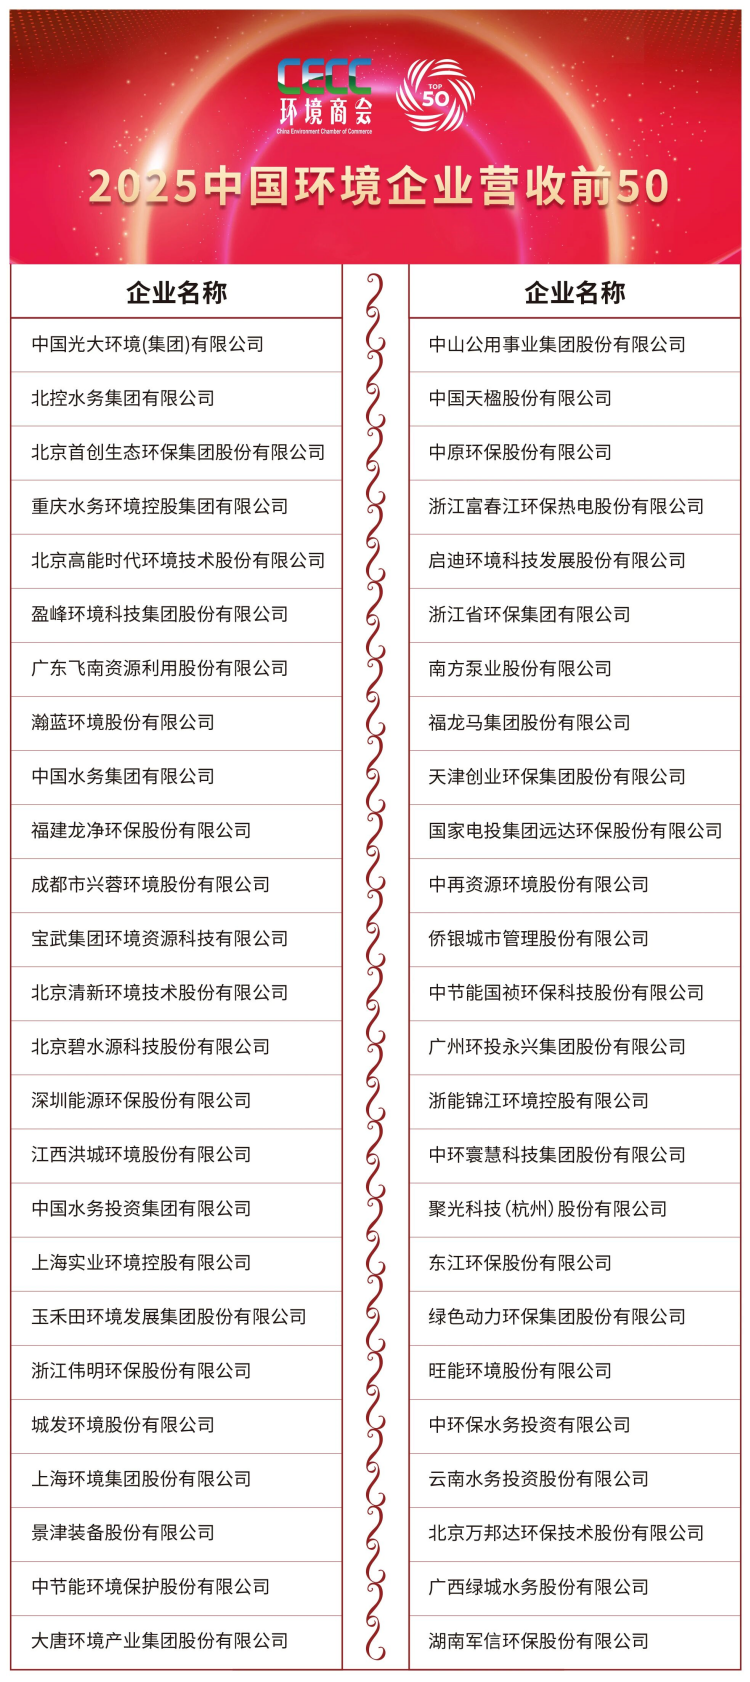 CECC
环境商会
China Environment Chamber of Commerce
TOP
50
2025中国环境企业营收前50
企业名称
中国光大环境(集团)有限公司
北控水务集团有限公司
北京首创生态环保集团股份有限公司
重庆水务环境控股集团有限公司
北京高能时代环境技术股份有限公司
盈峰环境科技集团股份有限公司
广东飞南资源利用股份有限公司
瀚蓝环境股份有限公司
中国水务集团有限公司
福建龙净环保股份有限公司
成都市兴蓉环境股份有限公司
宝武集团环境资源科技有限公司
北京清新环境技术股份有限公司
北京碧水源科技股份有限公司
深圳能源环保股份有限公司
江西洪城环境股份有限公司
中国水务投资集团有限公司
上海实业环境控股有限公司
玉禾田环境发展集团股份有限公司
浙江伟明环保股份有限公司
城发环境股份有限公司
上海环境集团股份有限公司
景津装备股份有限公司
中节能环境保护股份有限公司
大唐环境产业集团股份有限公司
企业名称
中山公用事业集团股份有限公司
中国天楹股份有限公司
中原环保股份有限公司
浙江富春江环保热电股份有限公司
启迪环境科技发展股份有限公司
浙江省环保集团有限公司
南方泵业股份有限公司
福龙马集团股份有限公司
天津创业环保集团股份有限公司
国家电投集团远达环保股份有限公司
中再资源环境股份有限公司
侨银城市管理股份有限公司
中节能国祯环保科技股份有限公司
广州环投永兴集团股份有限公司
浙能锦江环境控股有限公司
中环寰慧科技集团股份有限公司
聚光科技(杭州)股份有限公司
东江环保股份有限公司
绿色动力环保集团股份有限公司
旺能环境股份有限公司
中环保水务投资有限公司
云南水务投资股份有限公司
北京万邦达环保技术股份有限公司
广西绿城水务股份有限公司
湖南军信环保股份有限公司